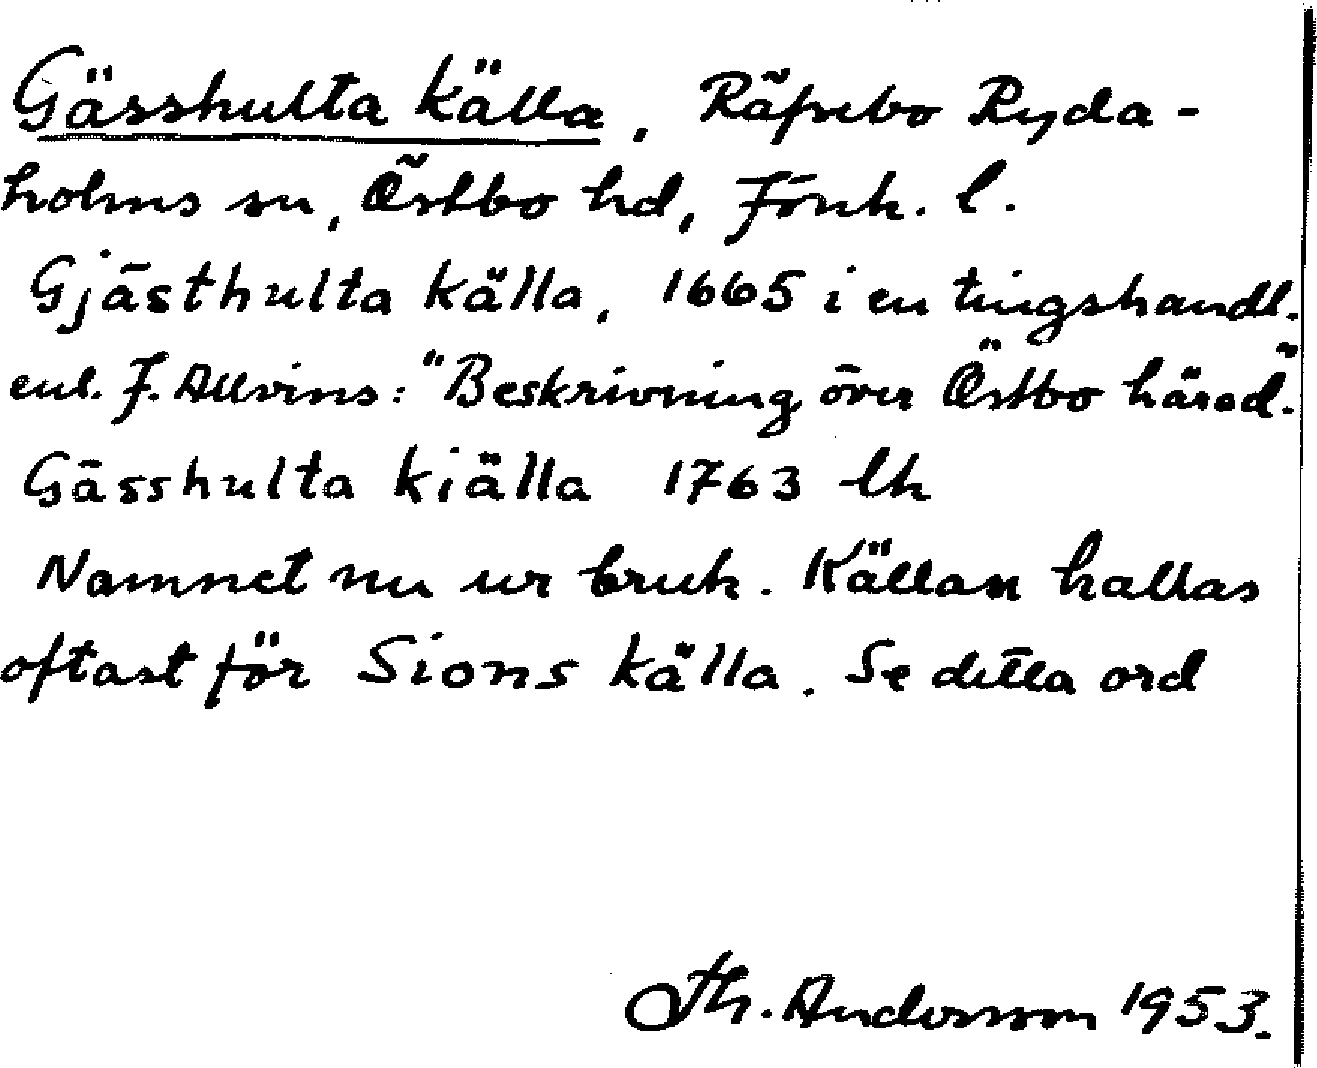 Gässhulta källa, Räfsebo Ryda-
holms sn, Östbo hd, Jönk. l.
Gjästhulta källa, 1665 i en tingshandl.
enl. J. Allvins: "Beskrivning över Östbo härad".
Gässhulta kiälla 1763 lh
Namnet nu ur bruk. Källan kallas
oftast för Sions källa. Se detta ord
Th. Andersson 1953.